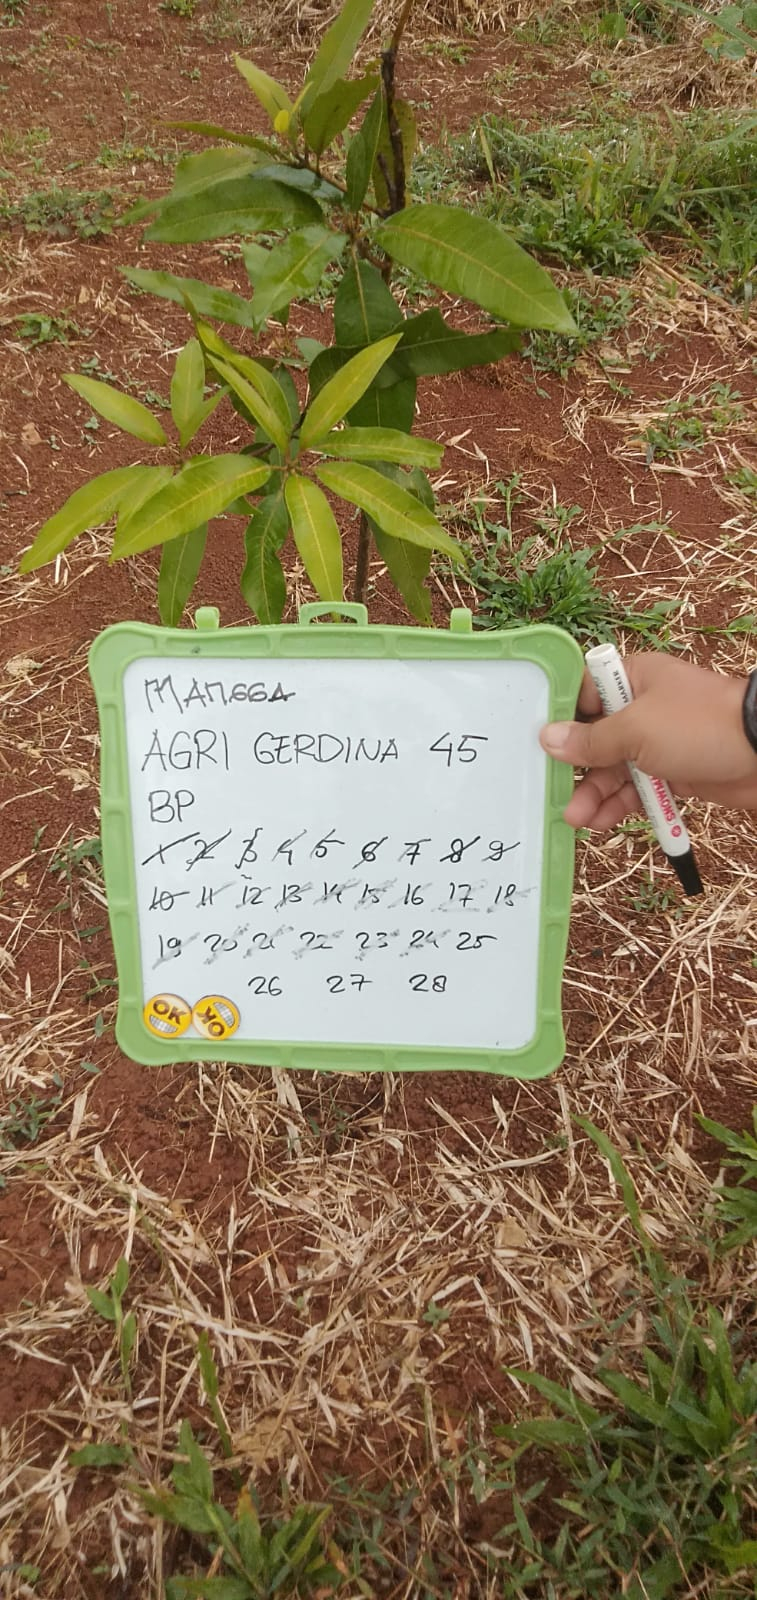 MANGGA
AGRI GERDINA 45
BP
1 2 3 4 5 6 7 8 9
10 11 12 13 14 15 16 17 18
19 20 21 22 23 24 25
26 27 28
OK OK
MARKER
SNOWMAN